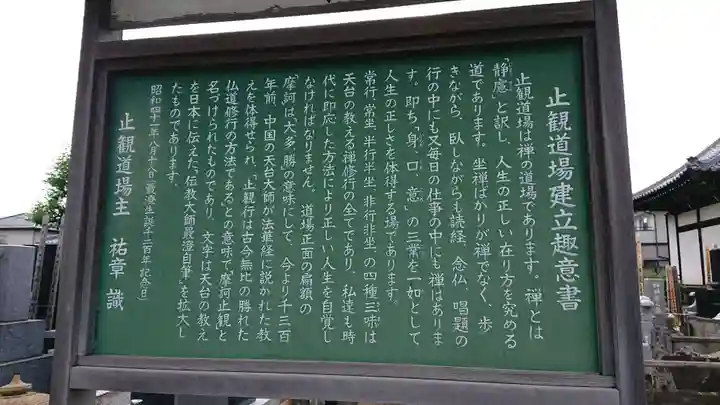 止観道場建立趣意書
止観道場は禅の道場であります。禅とは
「静慮」と訳し、人生の正しい在り方を究める
道であります。坐禅ばかりが禅でなく、歩
きながら、臥しながらも読経、念仏、唱題の
行の中にも又毎日の仕事の中にも禅はありま
す。即ち「身、口、意」の三業を一如として
人生の正しさを体得する場であります。
常行、常坐、半行半坐、非行非坐の四種三昧は
天台の教える禅修行の全てであり、私達も時
代に即応した方法により正しい人生を自覚し
なければなりません。道場正面の扁額の
「摩訶は大多勝の意味にして、今より千三百
年前、中国の天台大師が法華経に説かれた教
えを体得せられ、「止観行は古今無比の勝れた
仏道修行の方法である」との意味で「摩訶止観」と
名づけられたものであり、文字は天台の教え
を日本に伝えた「伝教大師最澄自筆」を拡大し
たものであります。
昭和四十一年八月十八日(最澄生誕千二百年記念日)
止観道場主　祐章識